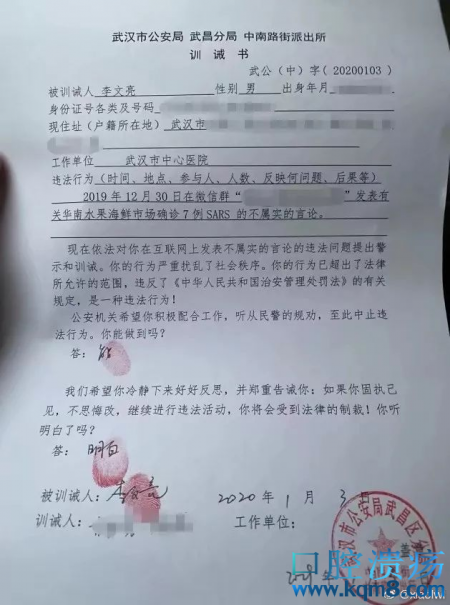 武汉市公安局 武昌分局 中南路街派出所
训 诫 书
武公（中）字（20200103）
被训诫人 李文亮 性别 男 出身年月
身份证号各类及号码
现住址（户籍所在地） 武汉市
工作单位 武汉市中心医院
违法行为（时间、地点、参与人、人数、反映何问题、后果等）
2019年12月30日在微信群“ ”发表有
关华南水果海鲜市场确诊7例SARS的不属实的言论。
现在依法对你在互联网上发表不属实的言论的违法问题提出警
示和训诫。你的行为严重扰乱了社会秩序。你的行为已超出了法律
所允许的范围，违反了《中华人民共和国治安管理处罚法》的有
关规定，是一种违法行为！
公安机关希望你积极配合工作，听从民警的规劝，至此中止违
法行为。你能做到吗？
答：能
我们希望你冷静下来好好反思，并郑重告诫你：如果你固执己
见，不思悔改，继续进行违法活动，你将会受到法律的制裁！你听
明白了吗？
答：明白
被训诫人：李文亮 2020年1月3日
训诫人： 工作单位：
武汉市公安局武昌区分
口腔溃疡
www.kqm8.com